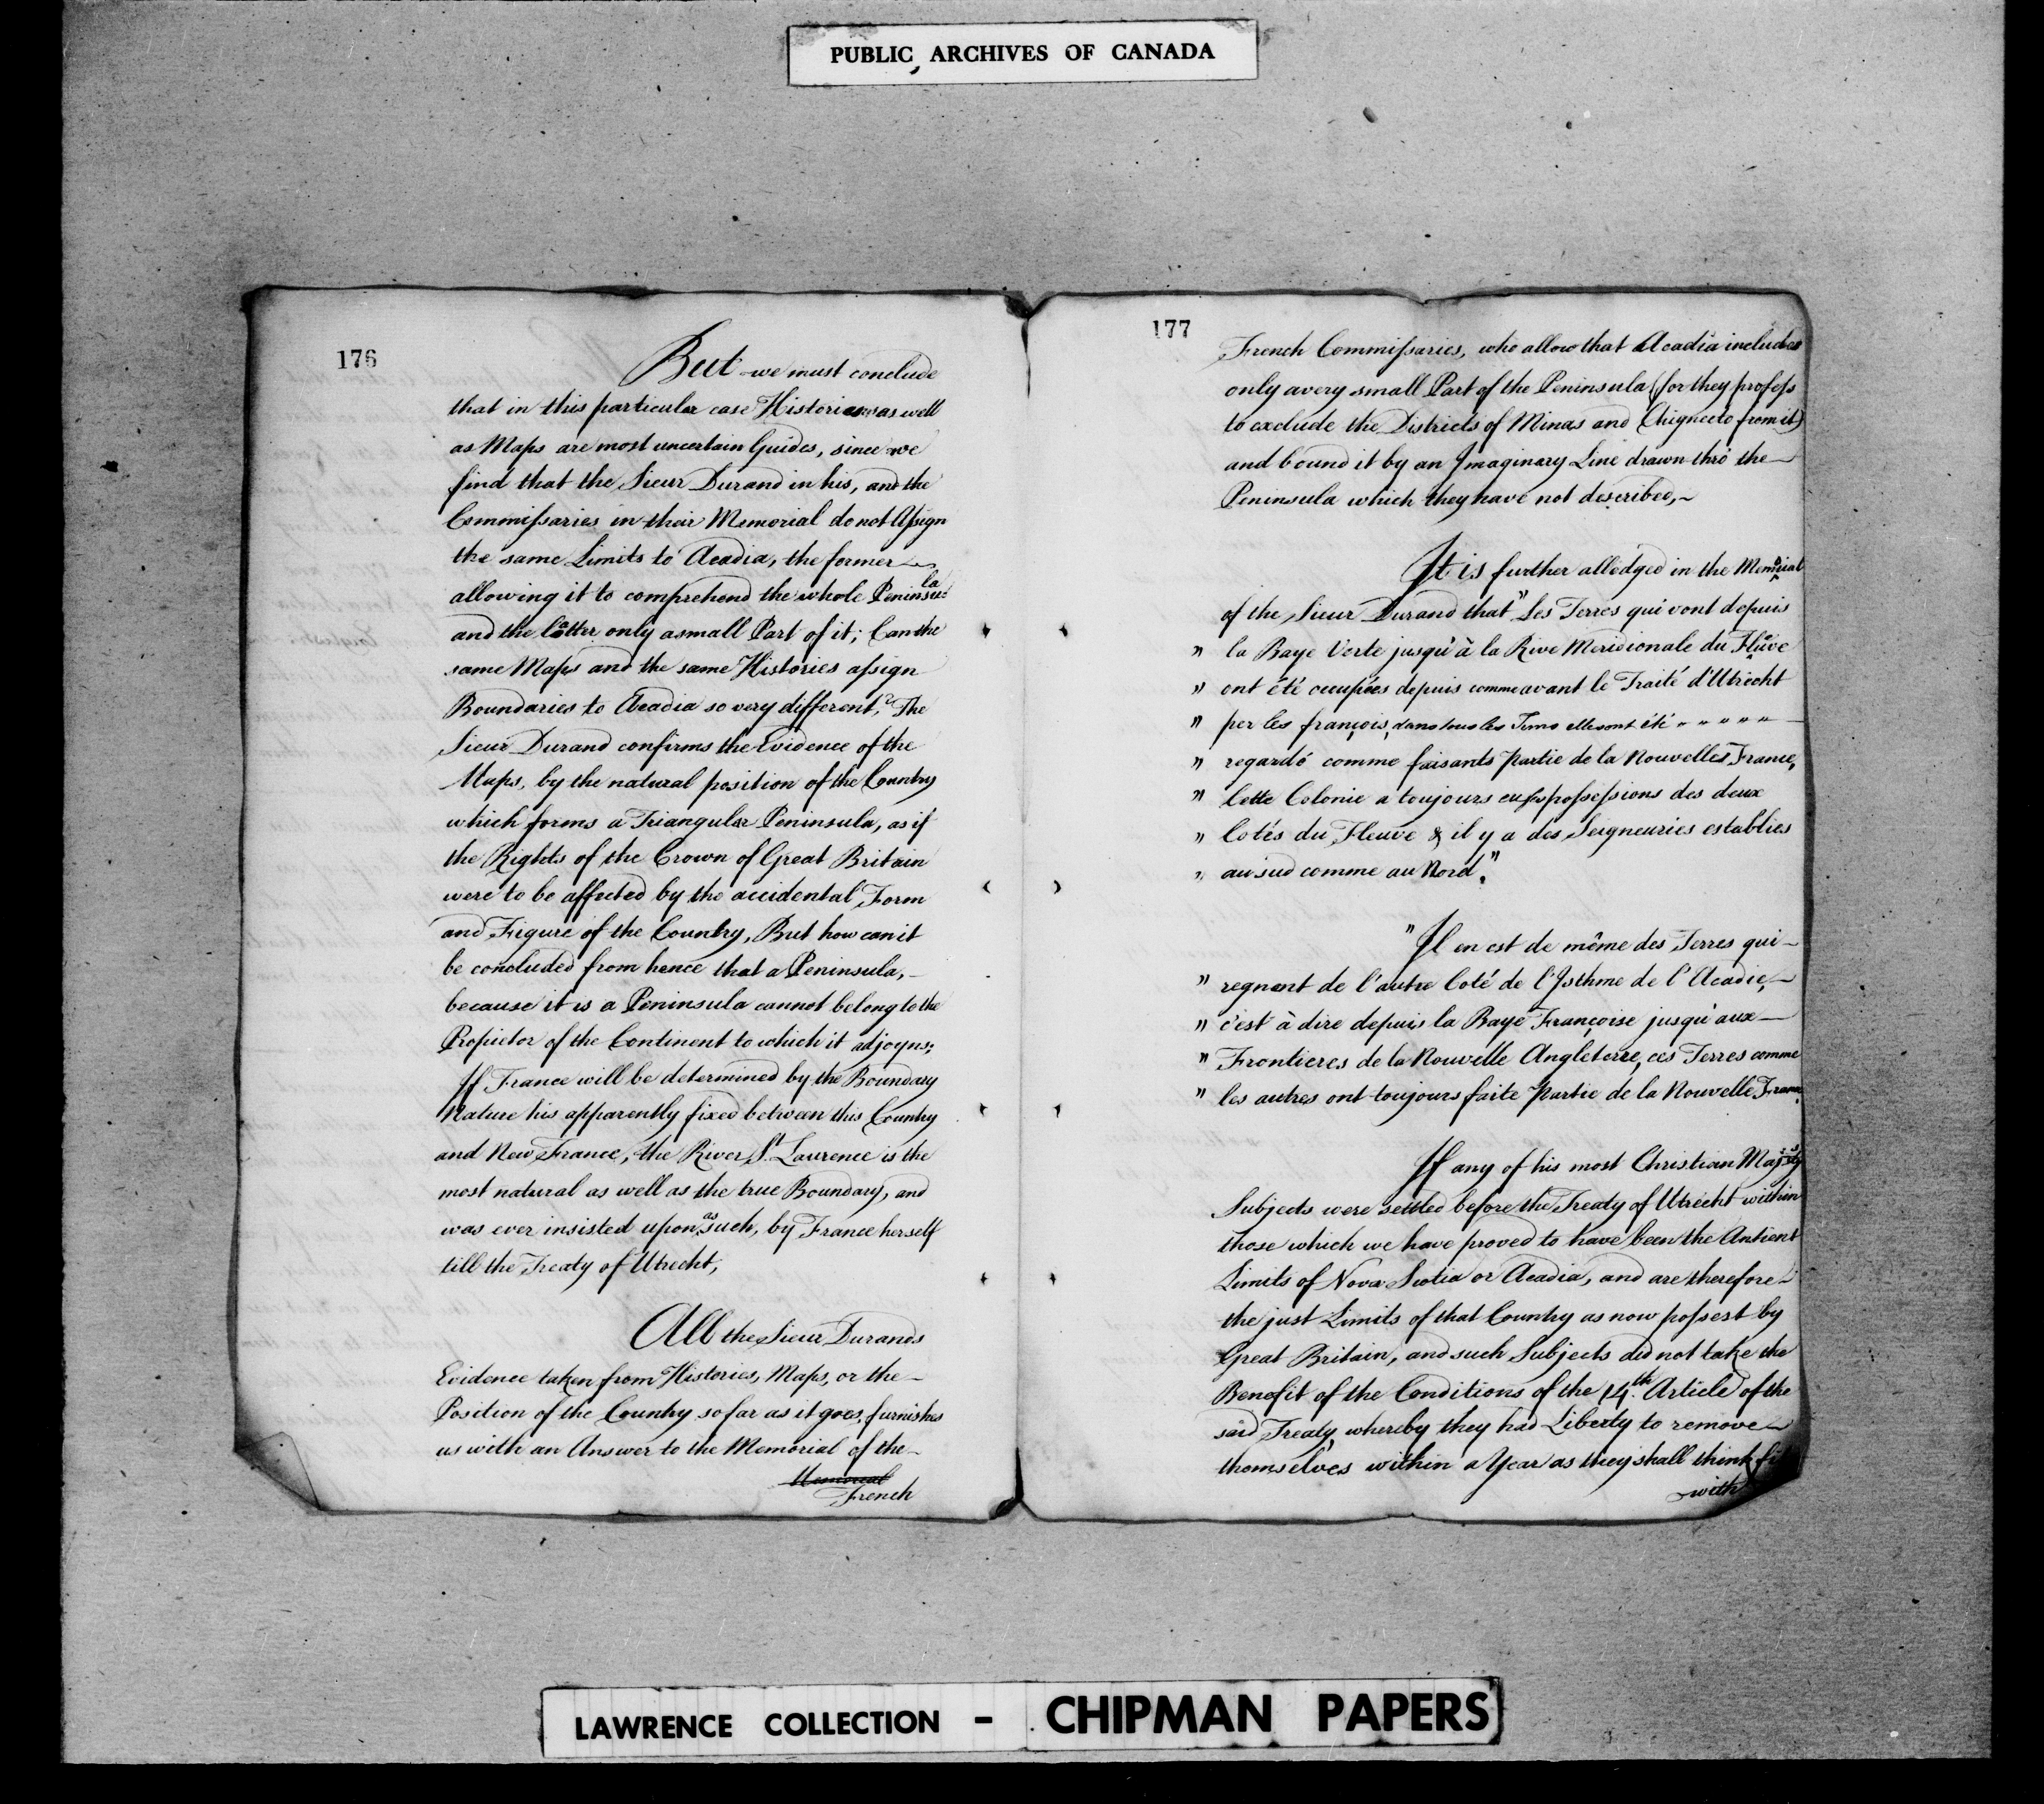 PUBLIC ARCHIVES OF CANADA
176
But we must conclude
that in this particular case Histories as well
as Maps are most uncertain Guides, since we
find that the Sieur Durand in his, and the
Commissaries in their Memorial do not Assign
the same Limits to Acadia, the former
allowing it to comprehend the whole Peninsula
and the latter only a small Part of it; Can the
same Maps and the same Histories assign
Boundaries to Acadia so very different? The
Sieur Durand confirms the Evidence of the
Maps, by the natural position of the Country
which forms a Triangular Peninsula, as if
the Rights of the Crown of Great Britain
were to be affected by the accidental Form
and Figure of the Country, But how can it
be concluded from hence that a Peninsula,
because it is a Peninsula cannot belong to the
Propietor of the Continent to which it adjoyns;
If France will be determined by the Boundary
Nature his apparently fixed between this Country
and New France, the River St. Laurence is the
most natural as well as the true Boundary, and
was ever insisted upon as such, by France herself
till the Treaty of Utrecht,
All the Sieur Durands
Evidence taken from Histories, Maps, or the
Position of the Country so far as it goes, furnishes
us with an Answer to the Memorial of the
Memorial
French
177
French Commissaries, who allow that Acadia includes
only a very small Part of the Peninsula (for they profess
to exclude the Districts of Minas and Chignecto from it)
and bound it by an Imaginary Line drawn thro' the
Peninsula which they have not described,
It is further alledged in the Memorial
of the Sieur Durand that "Les Terres qui vont depuis
" la Baye Verte jusqu'à la Rive Meridionale du Fleuve
" ont été occupées depuis comme avant le Traité d'Utrecht
" per les françois, dans tous les Tems elles ont été " " " " "
" regardé comme faisants partie de la Nouvelles France,
" Cette Colonie a toujours eu ses possessions des deux
" Cotés du Fleuve & il y a des Seigneuries establies
" au sud comme au Nord."
"Il en est de même des Terres qui
" regnent de l'autre Coté de l'Isthme de l'Acadie,
" c'est à dire depuis la Baye Françoise jusqu'aux
" Frontieres de la Nouvelle Angleterre, ces Terres comme
" les autres ont toujours faite partie de la Nouvelle France.
If any of his most Christian Majestys
Subjects were settled before the Treaty of Utrecht within
those which we have proved to have been the Antient
Limits of Nova Scotia or Acadia, and are therefore
the just Limits of that Country as now possest by
Great Britain, and such Subjects did not take the
Benefit of the Conditions of the 14th. Article of the
said Treaty, whereby they had Liberty to remove
themselves within a Year as they shall think fit
with
LAWRENCE COLLECTION - CHIPMAN PAPERS